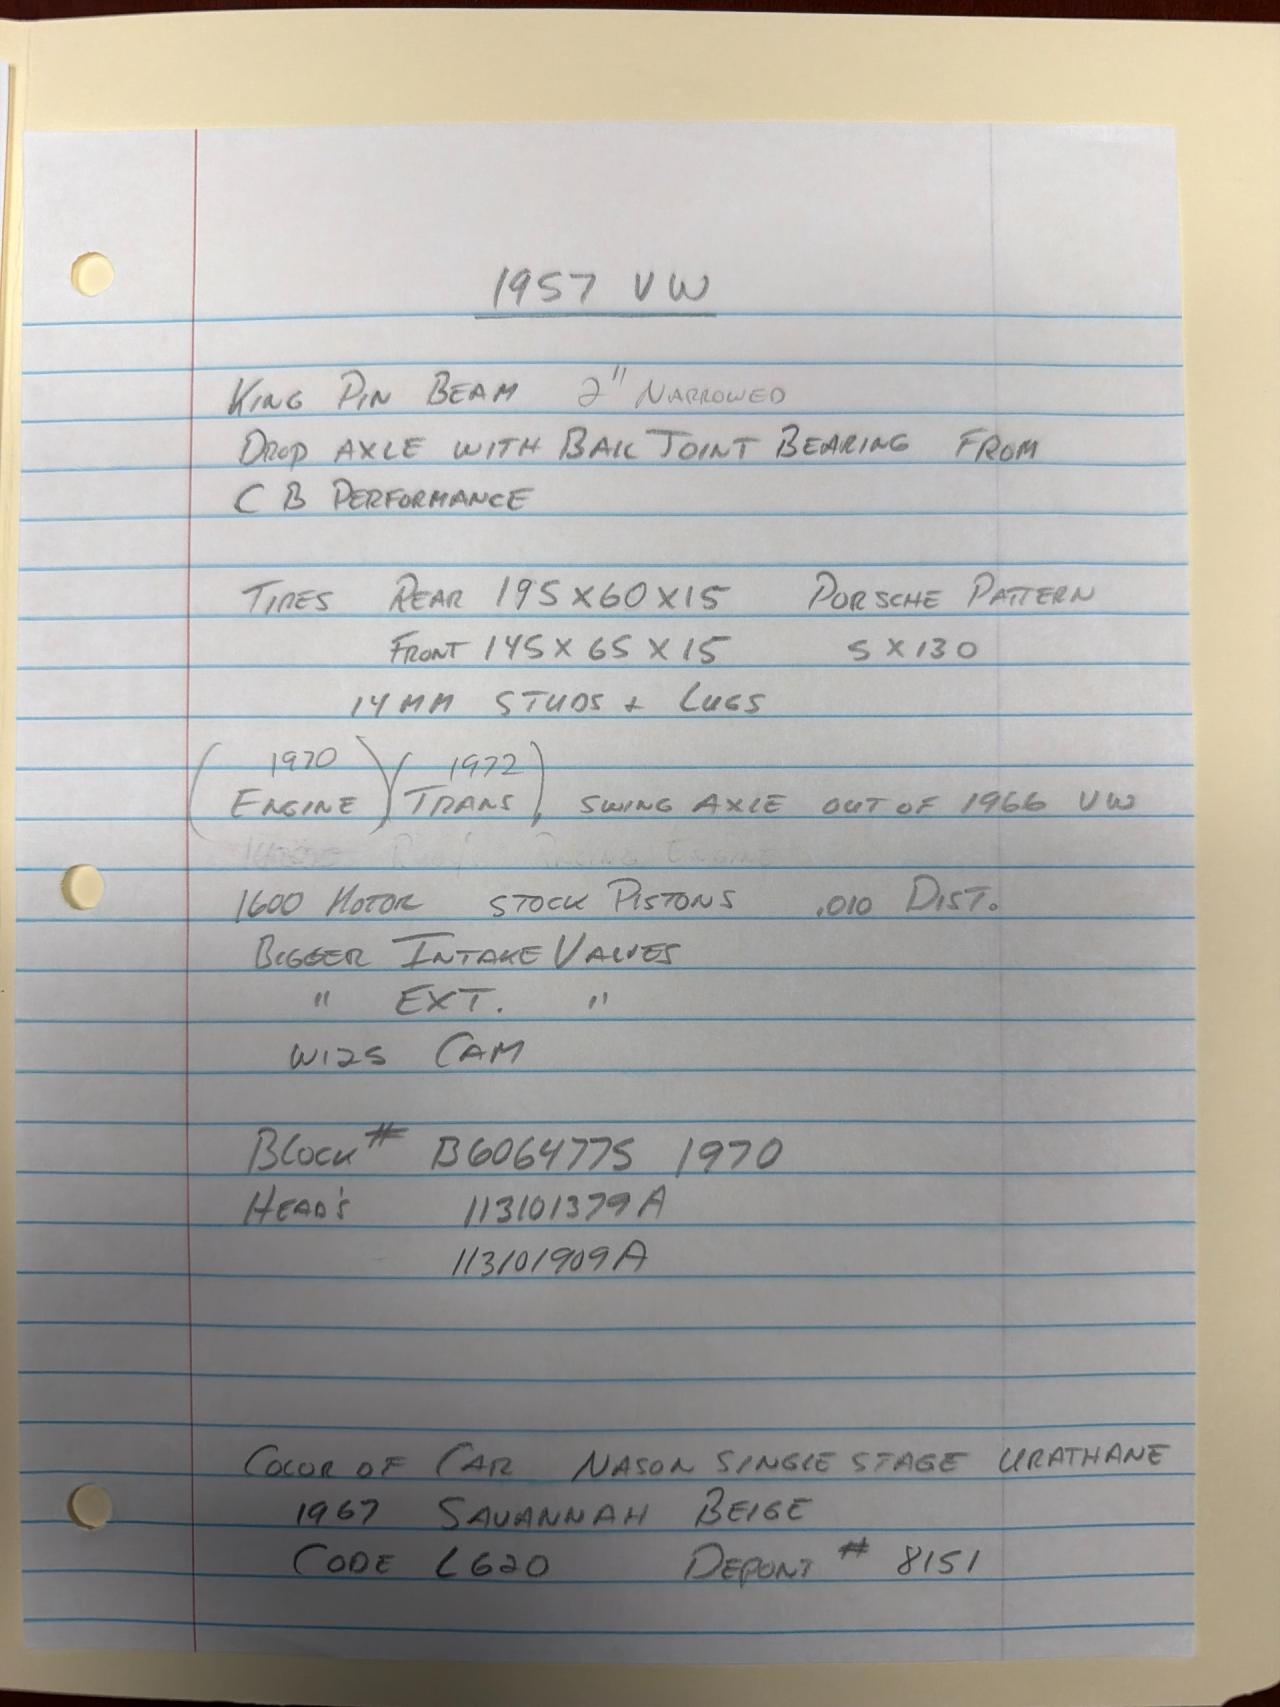 1957 VW
KING PIN BEAM 2" NARROWED
DROP AXLE WITH BALL JOINT BEARING FROM
C B PERFORMANCE
TIRES REAR 195X60X15 PORSCHE PATTERN
FRONT 145X65X15 5X130
14MM STUDS + LUGS
(1970 ENGINE) (1972 TRANS), SWING AXLE OUT OF 1966 VW
RACING ENGINE
1600 MOTOR STOCK PISTONS .010 DIST.
BIGGER INTAKE VALVES
" EXT. "
W125 CAM
BLOCK # B6064775 1970
HEAD'S 113101379A
113101909A
COLOR OF CAR NASON SINGLE STAGE URATHANE
1967 SAVANNAH BEIGE
CODE L620 DEPONT # 8151